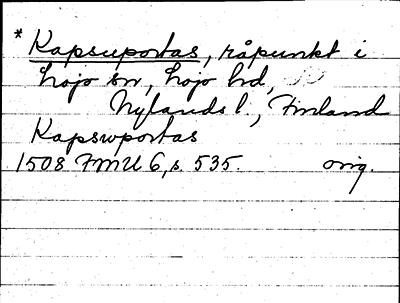 * Kapsuportas, råpunkt i
Lojo sn, Lojo hd,
Nylands l., Finland
Kapswportas
1508 FMU 6, s. 535. orig.